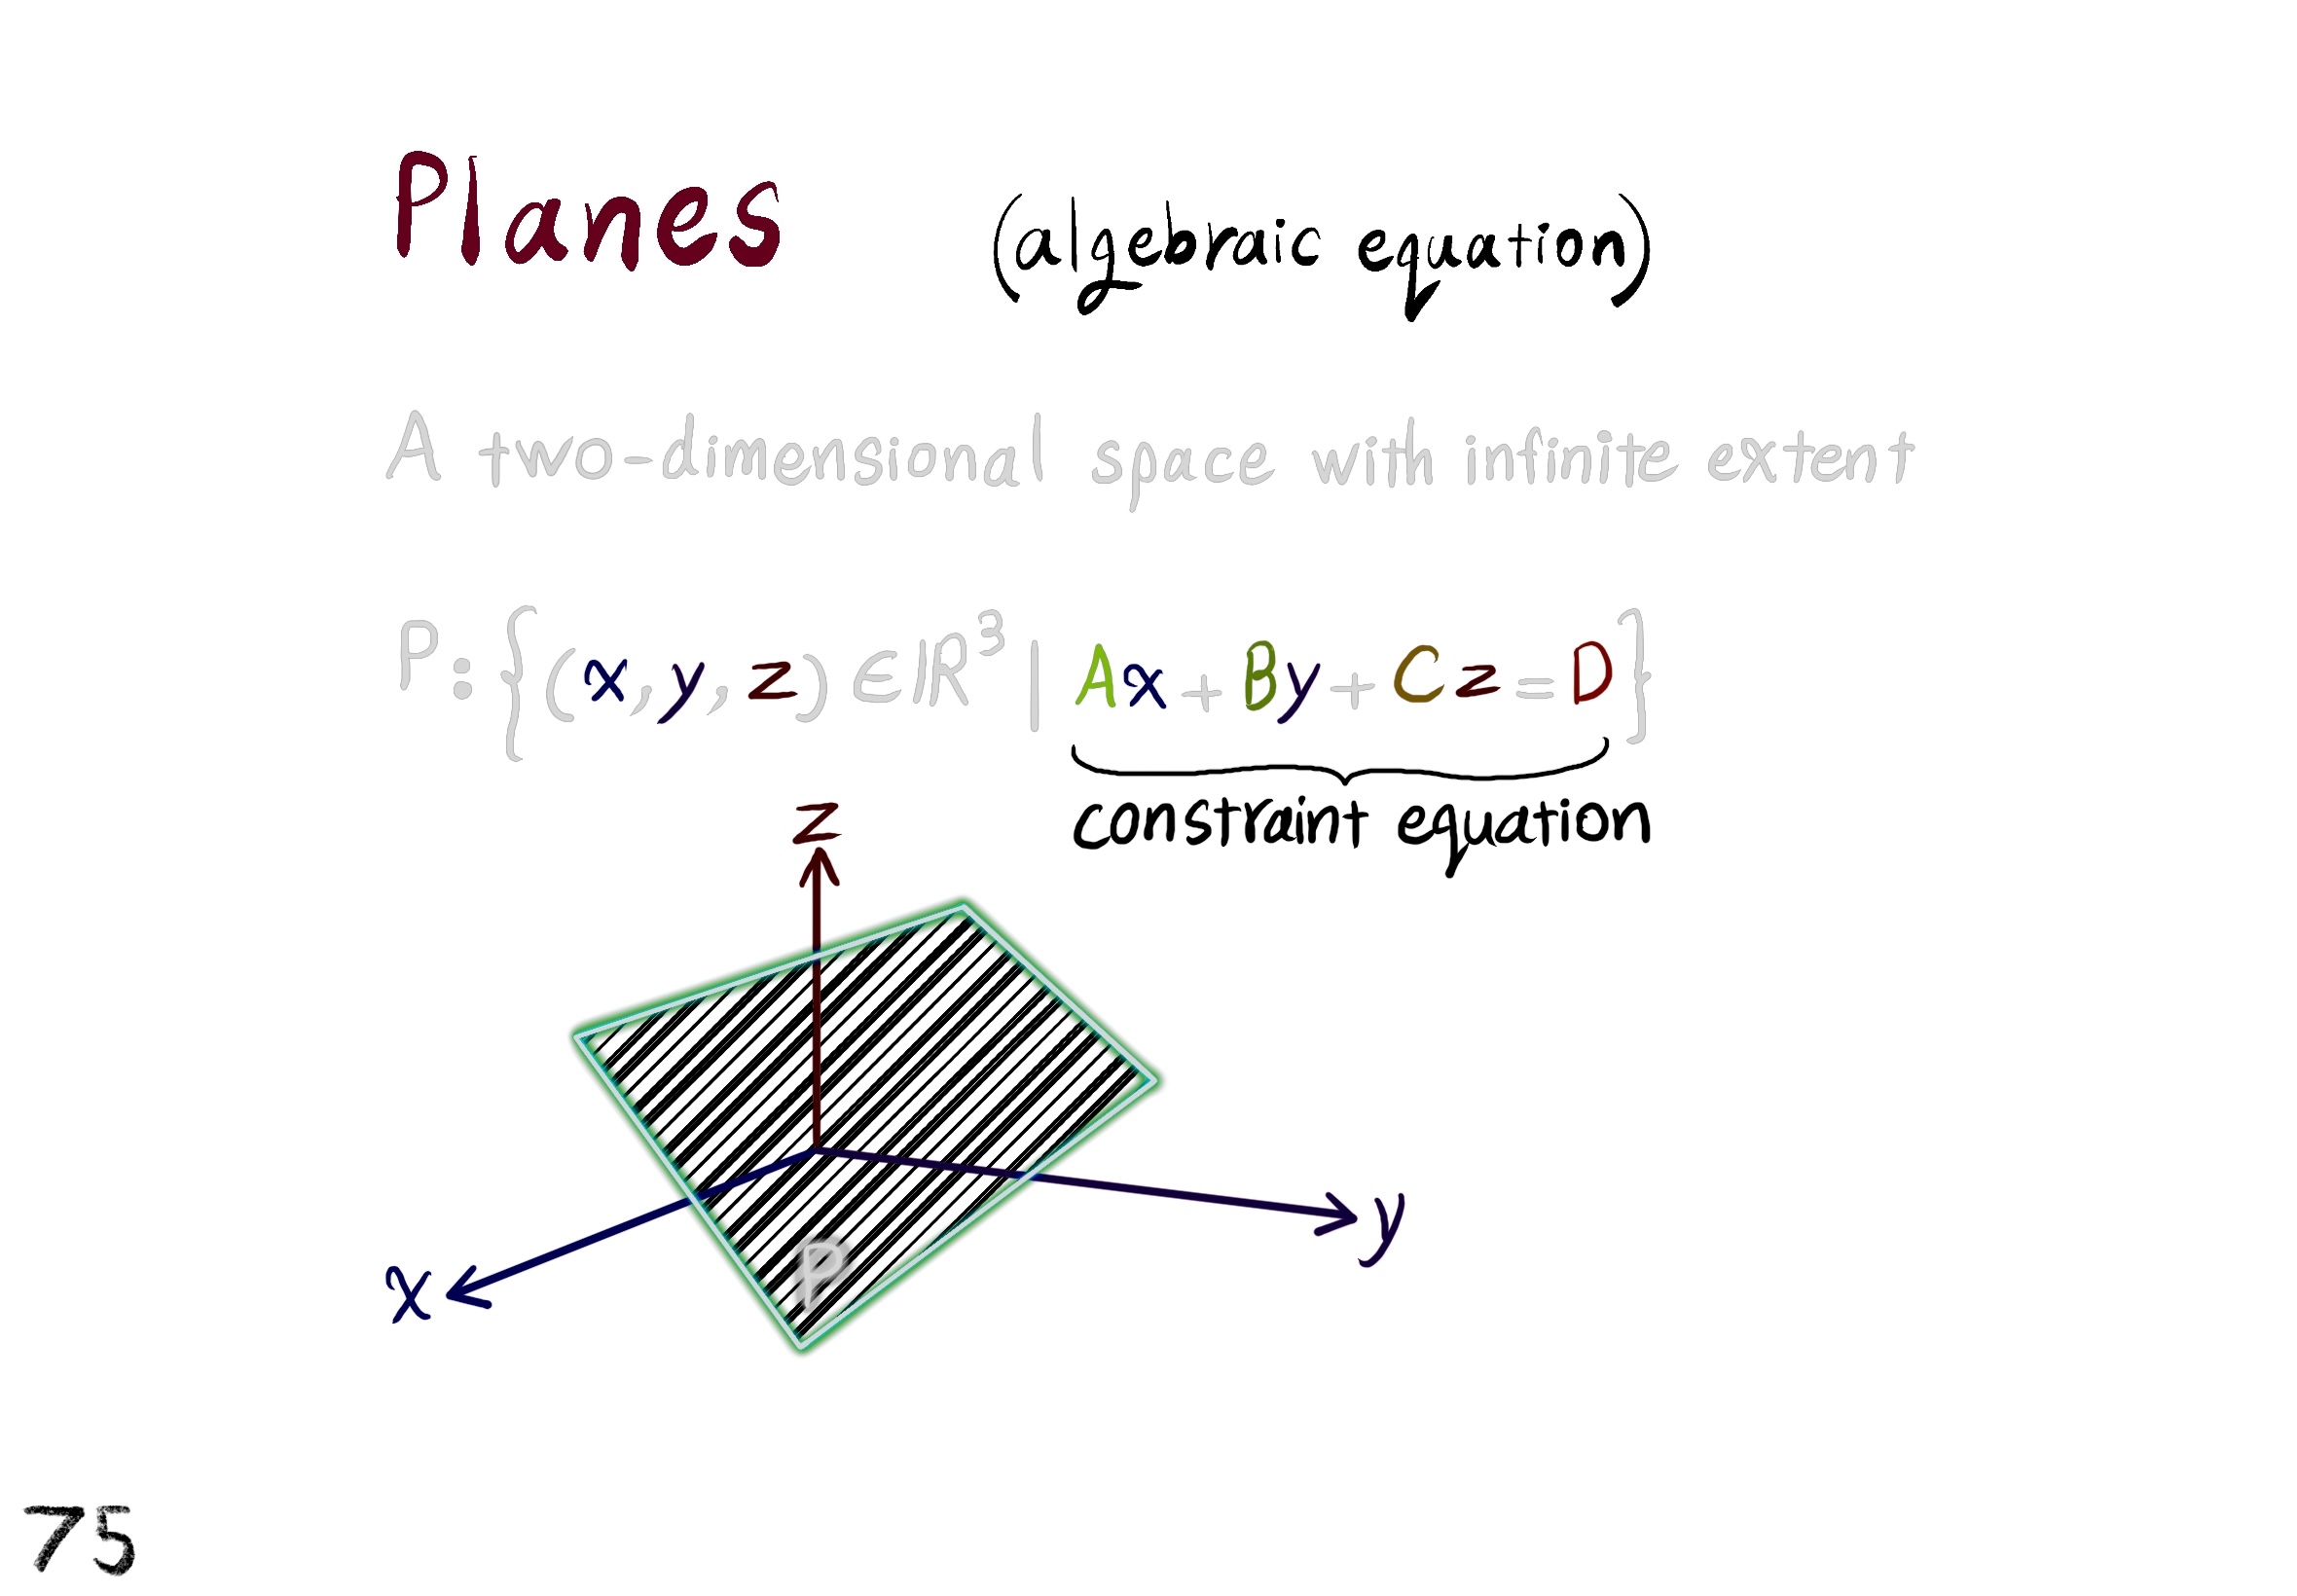 Planes (algebraic equation)
A two-dimensional space with infinite extent
P:{(x,y,z)∈ℝ³|Ax+By+Cz=D}
constraint equation
z
y
x
P
75